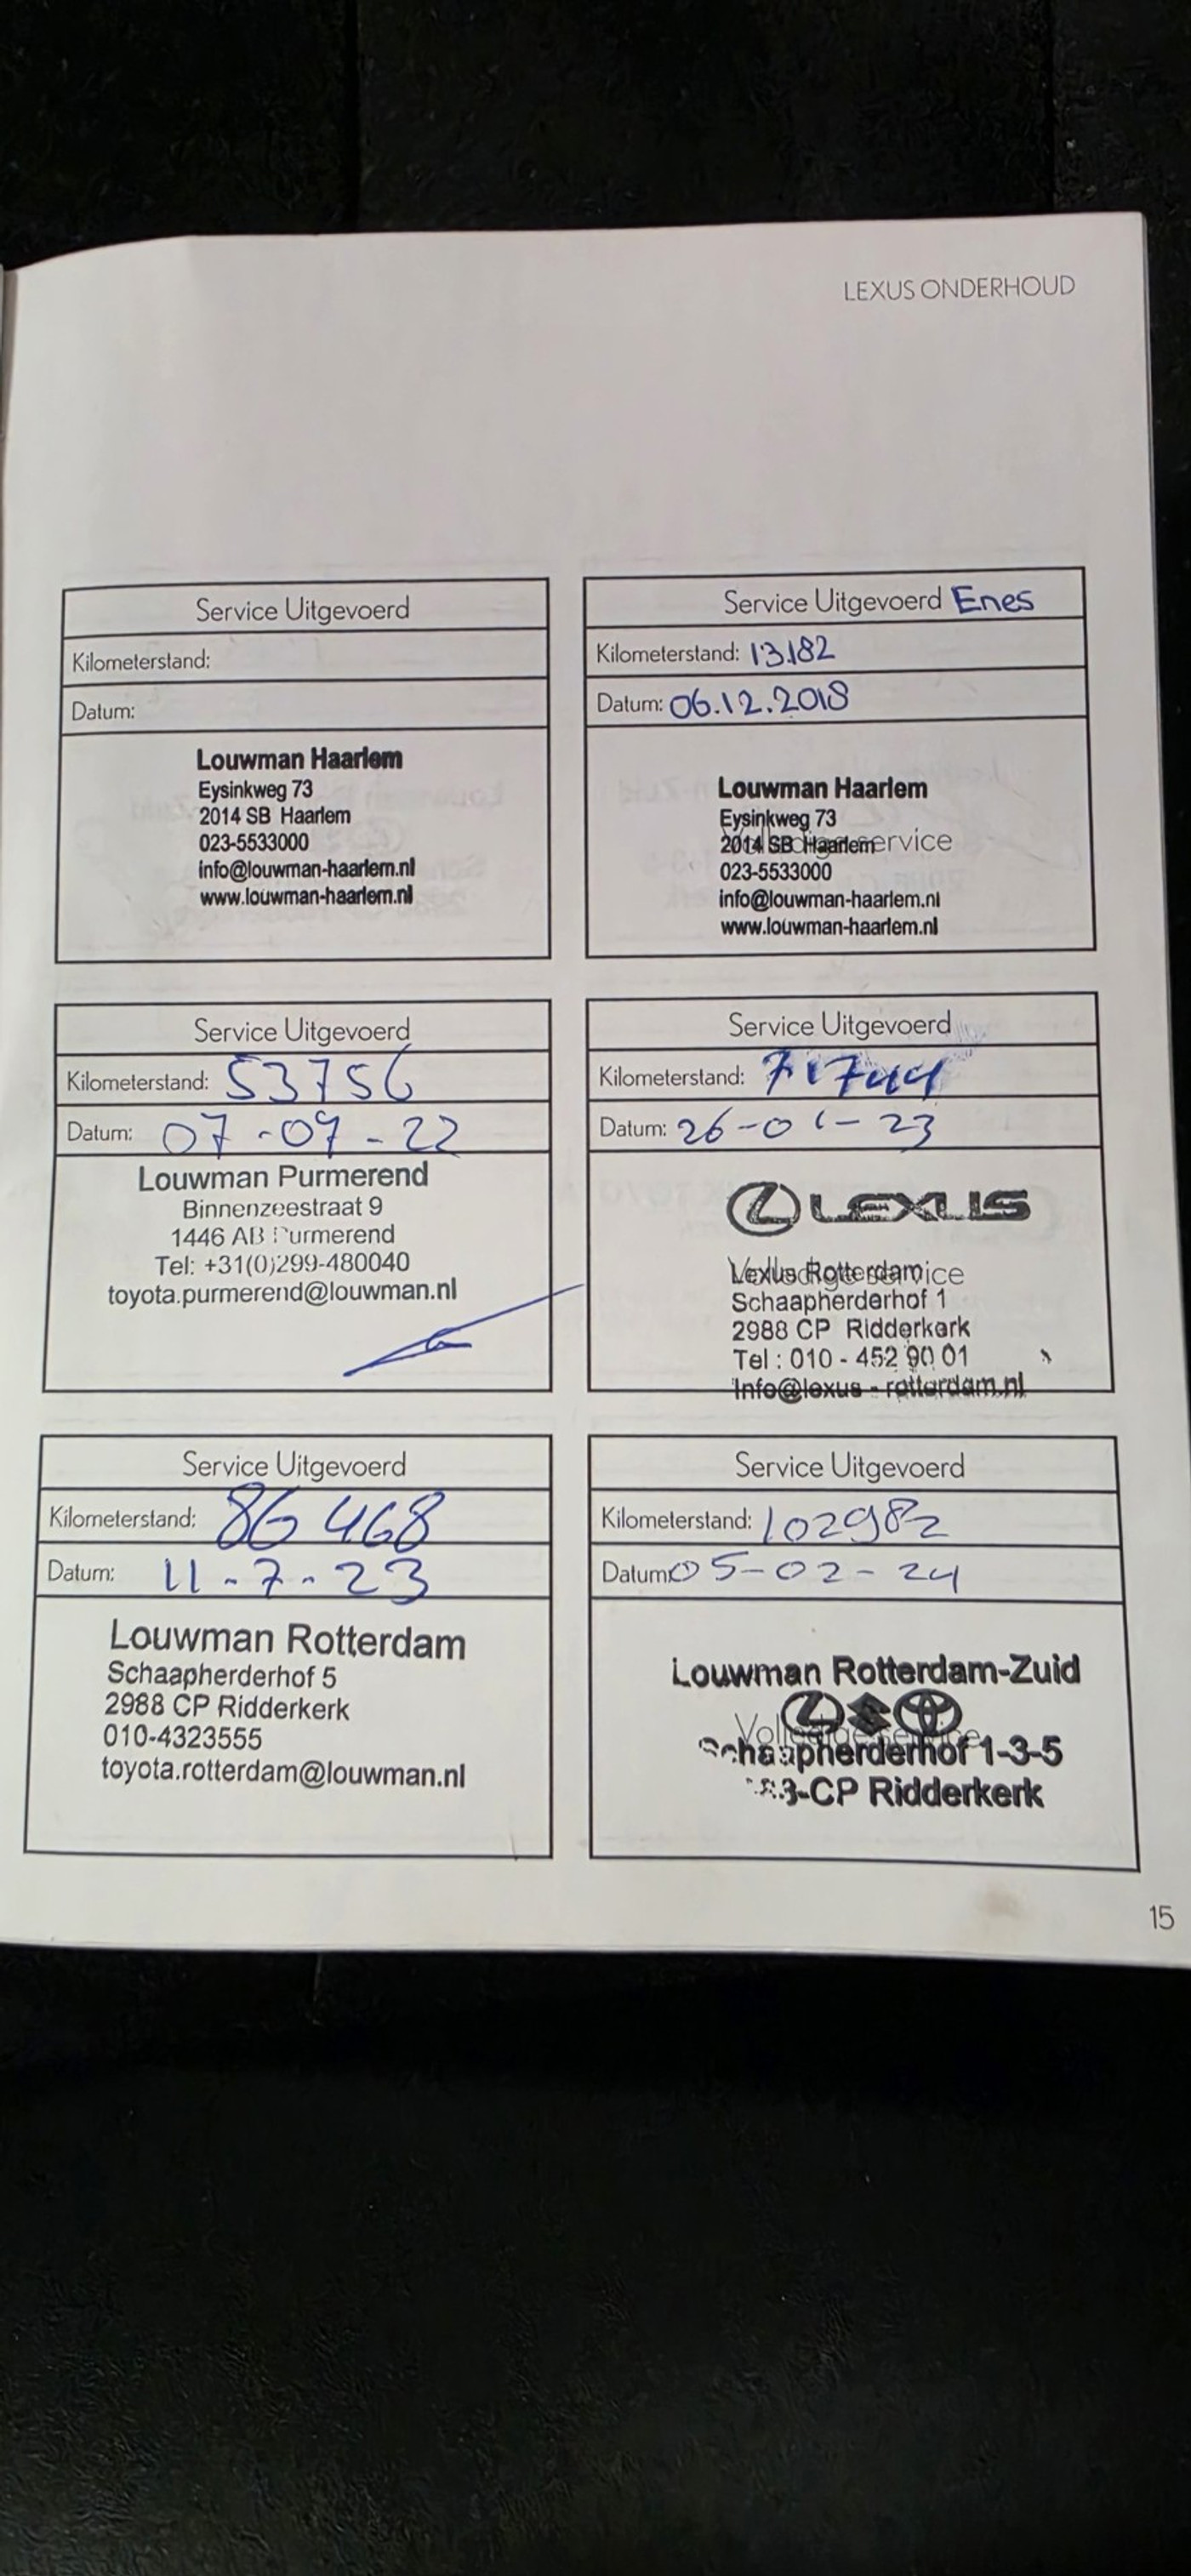 LEXUS ONDERHOUD
Service Uitgevoerd
Kilometerstand:
Datum:
Louwman Haarlem
Eysinkweg 73
2014 SB Haarlem
023-5533000
info@louwman-haarlem.nl
www.louwman-haarlem.nl
Service Uitgevoerd Enes
Kilometerstand: 13.182
Datum: 06.12.2018
Louwman Haarlem
Eysinkweg 73
2014 SB Haarlem
023-5533000
info@louwman-haarlem.nl
www.louwman-haarlem.nl
Service Uitgevoerd
Kilometerstand: 53756
Datum: 07-09-22
Louwman Purmerend
Binnenzeestraat 9
1446 AB Purmerend
Tel: +31(0)299-480040
toyota.purmerend@louwman.nl
Service Uitgevoerd
Kilometerstand: 71744
Datum: 26-01-23
LEXUS
Lexus Rotterdam
Schaapherderhof 1
2988 CP Ridderkerk
Tel : 010 - 452 90 01
Info@lexus - rotterdam.nl
Service Uitgevoerd
Kilometerstand: 86468
Datum: 11-7-23
Louwman Rotterdam
Schaapherderhof 5
2988 CP Ridderkerk
010-4323555
toyota.rotterdam@louwman.nl
Service Uitgevoerd
Kilometerstand: 102982
Datum: 05-02-24
Louwman Rotterdam-Zuid
Volledige service
Schaapherderhof 1-3-5
CP Ridderkerk
15